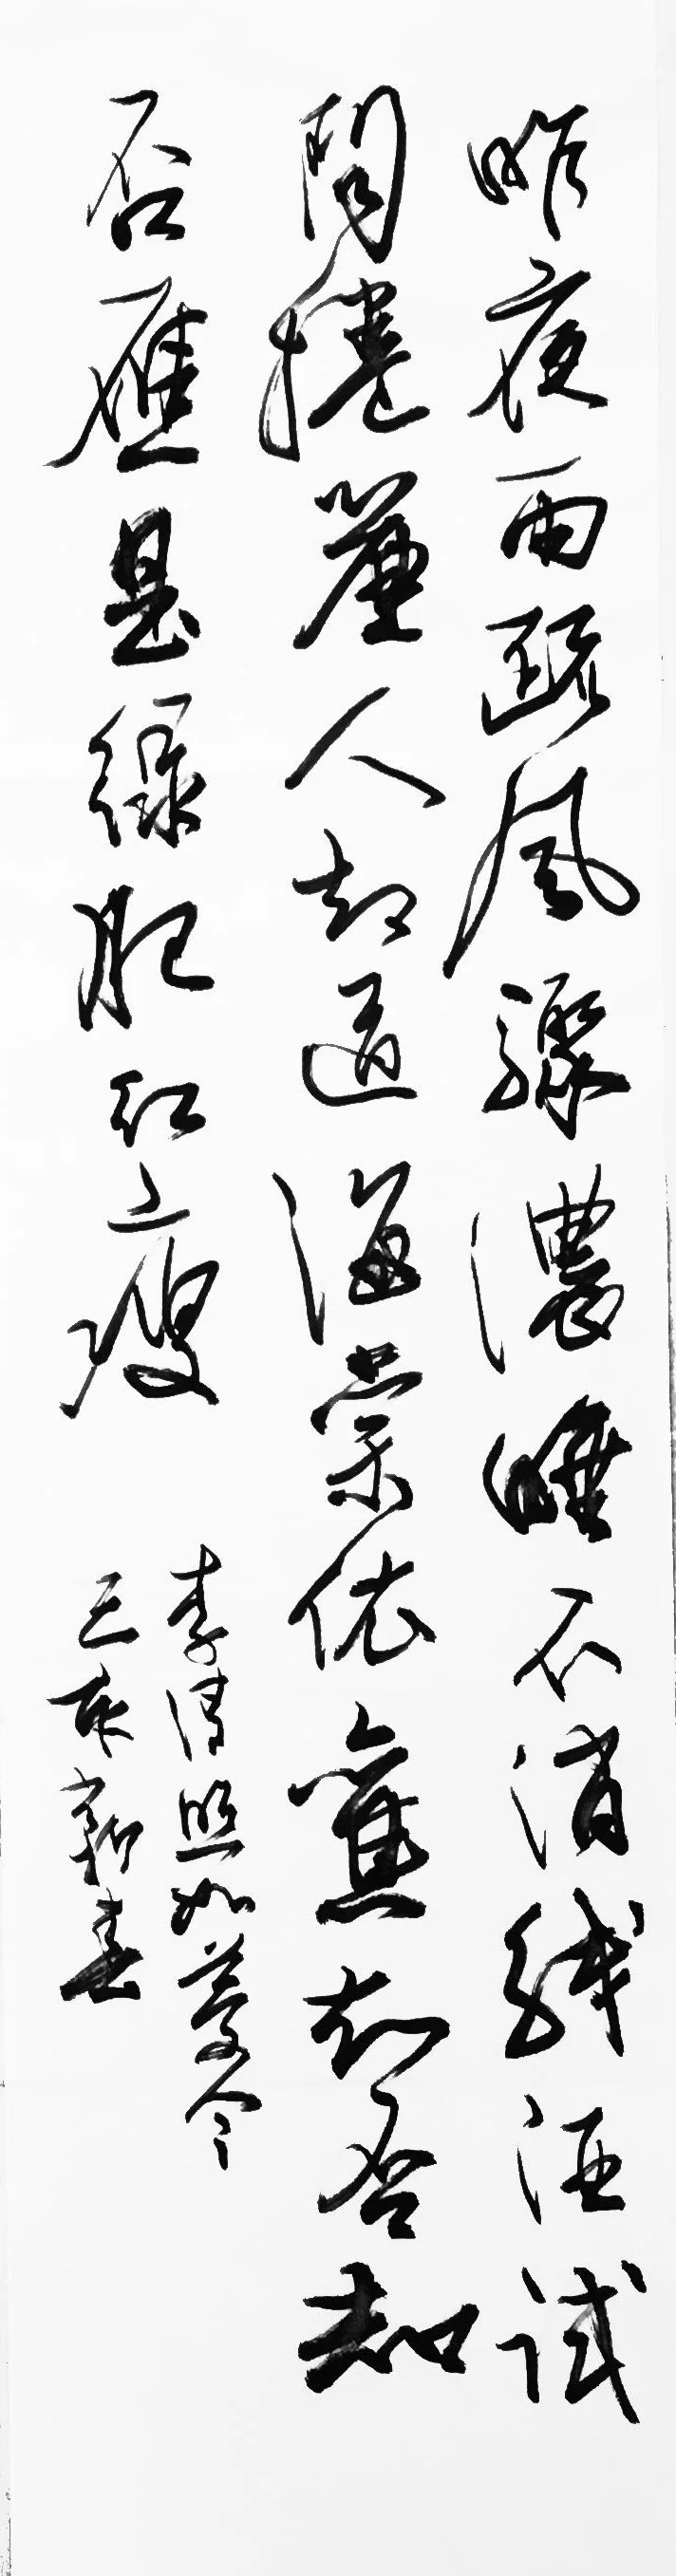 昨夜雨疏風驟濃睡不消残酒試
問捲簾人却道海棠依舊知否知
否應是綠肥紅瘦
李清照如夢令
己亥新春